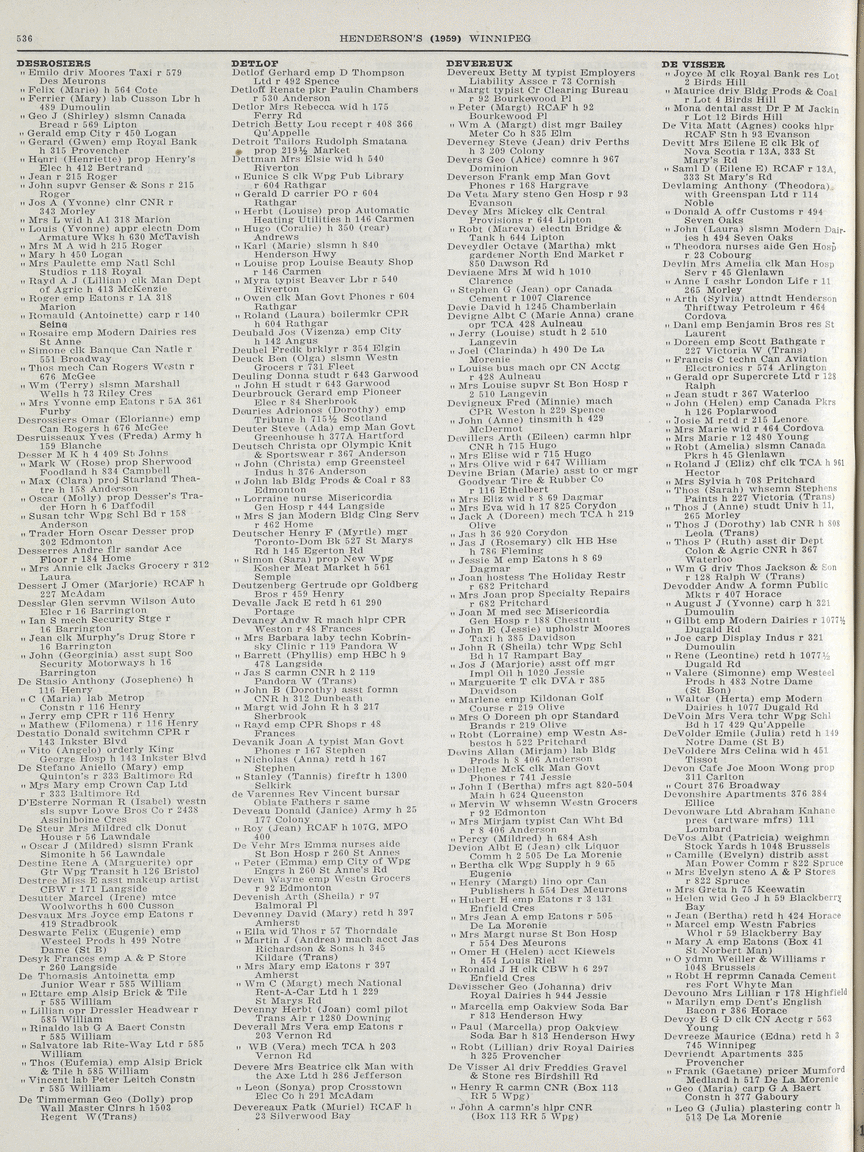 536
HENDERSON'S (1959) WINNIPEG
DESROSIERS
" Emilo driv Moores Taxi r 579
Des Meurons
" Felix (Marie) h 564 Cote
" Ferrier (Mary) lab Cusson Lbr h
489 Dumoulin
" Geo J (Shirley) slsmn Canada
Bread r 569 Lipton
" Gerald emp City r 450 Logan
" Gerard (Gwen) emp Royal Bank
h 315 Provencher
" Henri (Henriette) prop Henry's
Elec h 412 Bertrand
" Jean r 215 Roger
" John supvr Genser & Sons r 215
Roger
" Jos A (Yvonne) clnr CNR r
343 Morley
" Mrs L wid h A1 318 Marion
" Louis (Yvonne) appr electn Dom
Armature Wks h 630 McTavish
" Mrs M A wid h 215 Roger
" Mary h 450 Logan
" Mrs Paulette emp Natl Schl
Studios r 118 Royal
" Rayd A J (Lillian) clk Man Dept
of Agric h 413 McKenzie
" Roger emp Eatons r 1A 318
Marion
" Romauld (Antoinette) carp r 140
Seine
" Rosaire emp Modern Dairies res
St Anne
" Simone clk Banque Can Natle r
551 Broadway
" Thos mech Can Rogers Westn r
676 McGee
" Wm (Terry) slsmn Marshall
Wells h 73 Riley Cres
" Mrs Yvonne emp Eatons r 5A 361
Furby
Desrossiers Omar (Elorianne) emp
Can Rogers h 676 McGee
Desruisseaux Yves (Freda) Army h
159 Blanche
Desser M K h 4 409 St Johns
" Mark W (Rose) prop Sherwood
Foodland h 834 Campbell
" Max (Clara) proj Starland Thea-
tre h 158 Anderson
" Oscar (Molly) prop Desser's Tra-
der Horn h 6 Daffodil
" Susan tchr Wpg Schl Bd r 158
Anderson
" Trader Horn Oscar Desser prop
302 Edmonton
Desserres Andre flr sander Ace
Floor r 184 Home
" Mrs Annie clk Jacks Grocery r 312
Laura
Dessert J Omer (Marjorie) RCAF h
227 McAdam
Dessler Glen servmn Wilson Auto
Elec r 16 Barrington
" Ian S mech Security Stge r
16 Barrington
" Jean clk Murphy's Drug Store r
16 Barrington
" John (Georginia) asst supt Soo
Security Motorways h 16
Barrington
De Stasio Anthony (Josepheno) h
116 Henry
" C (Maria) lab Metrop
Constn r 116 Henry
" Jerry emp CPR r 116 Henry
" Mathew (Filomena) r 116 Henry
Destatio Donald switchmn CPR r
143 Inkster Blvd
" Vito (Angelo) orderly King
George Hosp h 143 Inkster Blvd
De Stefano Aniello (Mary) emp
Quinton's r 333 Baltimore Rd
" Mrs Mary emp Crown Cap Ltd
r 333 Baltimore Rd
D'Esterre Norman R (Isabel) westn
sls supvr Lowe Bros Co r 2438
Assiniboine Cres
De Steur Mrs Mildred clk Donut
House r 56 Lawndale
" Oscar J (Mildred) slsmn Frank
Simonite h 56 Lawndale
Destine Rene A (Marguerite) opr
Gtr Wpg Transit h 126 Bristol
Destree Miss E asst makeup artist
CBW r 171 Langside
Desutter Marcel (Irene) mtce
Woolworths h 600 Cusson
Desvaux Mrs Joyce emp Eatons r
419 Stradbrook
Deswarte Felix (Eugenie) emp
Westeel Prods h 499 Notre
Dame (St B)
Desyk Frances emp A & P Store
r 260 Langside
De Thomasis Antoinetta emp
Junior Wear r 585 William
" Ettare emp Alsip Brick & Tile
r 585 William
" Lillian opr Dressler Headwear r
585 William
" Rinaldo lab G A Baert Constn
r 585 William
" Salvatore lab Rite-Way Ltd r 585
William
" Thos (Eufemia) emp Alsip Brick
& Tile h 585 William
" Vincent lab Peter Leitch Constn
r 585 William
De Timmerman Geo (Dolly) prop
Wall Master Clnrs h 1503
Regent W(Trans)
DETLOF
Detlof Gerhard emp D Thompson
Ltd r 492 Spence
Detloff Renate pkr Paulin Chambers
r 530 Anderson
Detlor Mrs Rebecca wid h 175
Ferry Rd
Detrich Betty Lou recept r 408 366
Qu'Appelle
Detroit Tailors Rudolph Smatana
prop 219½ Market
Dettman Mrs Elsie wid h 540
Riverton
" Eunice S clk Wpg Pub Library
r 604 Rathgar
" Gerald D carrier PO r 604
Rathgar
" Herbt (Louise) prop Automatic
Heating Utilities h 146 Carmen
" Hugo (Coralie) h 350 (rear)
Andrews
" Karl (Marie) slsmn h 840
Henderson Hwy
" Louise prop Louise Beauty Shop
r 146 Carmen
" Myra typist Beaver Lbr r 540
Riverton
" Owen clk Man Govt Phones r 604
Rathgar
" Roland (Laura) boilermkr CPR
h 604 Rathgar
Deubald Jos (Vizenza) emp City
h 142 Angus
Deubel Fredk brklyr r 354 Elgin
Deuck Ben (Olga) slsmn Westn
Grocers r 731 Fleet
Deuling Donna studt r 643 Garwood
" John H studt r 643 Garwood
Deurbrouck Gerard emp Pioneer
Elec r 84 Sherbrook
Deuries Adrionos (Dorothy) emp
Tribune h 715½ Scotland
Deuter Steve (Ada) emp Man Govt
Greenhouse h 377A Hartford
Deutsch Chris opr Olympic Knit
& Sportswear r 367 Anderson
" John (Christa) emp Greensteel
Indus h 376 Anderson
" John lab Bldg Prods & Coal r 83
Edmonton
" Lorraine nurse Misericordia
Gen Hosp r 444 Langside
" Mrs S jan Modern Bldg Clng Serv
r 462 Home
Deutscher Henry F (Myrtle) mgr
Toronto-Dom Bk 527 St Marys
Rd h 145 Egerton Rd
" Simon (Sara) prop New Wpg
Kosher Meat Market h 561
Semple
Deutzenberg Gertrude opr Goldberg
Bros r 459 Henry
Devalle Jack E retd h 61 290
Portage
Devaney Andw R mach hlpr CPR
Weston r 48 Frances
" Mrs Barbara laby techn Kobrin-
sky Clinic r 119 Pandora W
" Barrett (Phyllis) emp HBC h 9
478 Langside
" Jas S carmn CNR h 2 119
Pandora W (Trans)
" John B (Dorothy) asst formn
CNR h 312 Dunbeath
" Margt wid John R h 3 217
Sherbrook
" Rayd emp CPR Shops r 48
Frances
Devanik Joan A typist Man Govt
Phones r 167 Stephen
" Nicholas (Anna) retd h 167
Stephen
" Stanley (Tannis) fireftr h 1300
Selkirk
de Varennes Rev Vincent bursar
Oblate Fathers r same
Deveau Donald (Janice) Army h 25
177 Colony
" Roy (Jean) RCAF h 107G, MPO
400
De Vehr Mrs Emma nurses aide
St Bon Hosp r 260 St Annes
" Peter (Emma) emp City of Wpg
Engrs h 260 St Anne's Rd
Deven Wayne emp Westn Grocers
r 92 Edmonton
Devenish Arth (Sheila) r 97
Balmoral Pl
Devenney David (Mary) retd h 397
Amherst
" Ella wid Thos r 57 Thorndale
" Martin J (Andrea) mach acct Jas
Richardson & Sons h 345
Kildare (Trans)
" Mrs Mary emp Eatons r 397
Amherst
" Wm C (Margt) mech National
Rent-A-Car Ltd h 1 229
St Marys Rd
Devenny Herbt (Joan) coml pilot
Trans Air r 1280 Downing
Deverall Mrs Vera emp Eatons r
203 Vernon Rd
" WB (Vera) mech TCA h 203
Vernon Rd
Devere Mrs Beatrice clk Man with
the Axe Ltd h 286 Jefferson
" Leon (Sonya) prop Crosstown
Elec Co h 291 McAdam
Devereaux Patk (Muriel) RCAF h
23 Silverwood Bay
DEVEREUX
Devereux Betty M typist Employers
Liability Assce r 73 Cornish
" Margt typist Cr Clearing Bureau
r 92 Bourkewood Pl
" Peter (Margt) RCAF h 92
Bourkewood Pl
" Wm A (Margt) dist mgr Bailey
Meter Co h 835 Elm
Deverney Steve (Jean) driv Perths
h 3 309 Colony
Devers Geo (Alice) comnre h 967
Dominion
Deverson Frank emp Man Govt
Phones r 168 Hargrave
De Veta Mary steno Gen Hosp r 93
Evanson
Devey Mrs Mickey clk Central
Provisions r 644 Lipton
" Robt (Mareva) electn Bridge &
Tank h 644 Lipton
Deveydler Octave (Martha) mkt
gardener North End Market r
850 Dawson Rd
Deviaene Mrs M wid h 1010
Clarence
" Stephen G (Jean) opr Canada
Cement r 1007 Clarence
Devie David h 1245 Chamberlain
Devigne Albt C (Marie Anna) crane
opr TCA 428 Aulneau
" Jerry (Louise) studt h 2 510
Langevin
" Joel (Clarinda) h 490 De La
Morenie
" Louise bus mach opr CN Acctg
r 428 Aulneau
" Mrs Louise supvr St Bon Hosp r
2 510 Langevin
Devigneux Fred (Minnie) mach
CPR Weston h 229 Spence
" John (Anne) tinsmith h 429
McDermot
Devillers Arth (Eileen) carmn hlpr
CNR h 715 Hugo
" Mrs Elise wid r 715 Hugo
" Mrs Olive wid r 647 William
Devine Brian (Marie) asst to cr mgr
Goodyear Tire & Rubber Co
r 116 Ethelbert
" Mrs Eliz wid r 8 69 Dagmar
" Mrs Eva wid h 17 825 Corydon
" Jack A (Doreen) mech TCA h 219
Olive
" Jas h 36 920 Corydon
" Jas J (Rosemary) clk HB Hse
h 786 Fleming
" Jessie M emp Eatons h 8 69
Dagmar
" Joan hostess The Holiday Restr
r 682 Pritchard
" Mrs Joan prop Specialty Repairs
r 682 Pritchard
" Joan M med sec Misericordia
Gen Hosp r 188 Chestnut
" John E (Jessie) upholstr Moores
Taxi h 385 Davidson
" John R (Sheila) tchr Wpg Schl
Bd h 17 Rampart Bay
" Jos J (Marjorie) asst off mgr
Impl Oil h 1020 Jessie
" Marguerite T clk DVA r 385
Davidson
" Marlene emp Kildonan Golf
Course r 219 Olive
" Mrs O Doreen ph opr Standard
Brands r 219 Olive
" Robt (Lorraine) emp Westn As-
bestos h 522 Pritchard
Devins Allan (Mirjam) lab Bldg
Prods h 8 406 Anderson
" Dellene McK clk Man Govt
Phones r 741 Jessie
" John I (Bertha) mfrs agt 820-504
Main h 624 Queenston
" Mervin W whsemn Westn Grocers
r 92 Edmonton
" Mrs Mirjam typist Can Wht Bd
r 8 406 Anderson
" Percy (Mildred) h 684 Ash
Devion Albt E (Jean) clk Liquor
Comm h 2 505 De La Morenie
" Bertha clk Wpg Supply h 9 65
Eugenie
" Henry (Margt) lino opr Can
Publishers h 554 Des Meurons
" Hubert H emp Eatons r 3 131
Enfield Cres
" Mrs Jean A emp Eatons r 505
De La Morenie
" Mrs Margt nurse St Bon Hosp
r 554 Des Meurons
" Omer H (Helen) acct Kiewels
h 454 Louis Riel
" Ronald J H clk CBW h 6 297
Enfield Cres
Devisscher Geo (Johanna) driv
Royal Dairies h 944 Jessie
" Marcella emp Oakview Soda Bar
r 813 Henderson Hwy
" Paul (Marcella) prop Oakview
Soda Bar h 813 Henderson Hwy
" Robt (Lillian) driv Royal Dairies
h 325 Provencher
De Visser Al driv Freddies Gravel
& Stone res Birdshill Rd
" Henry R carmn CNR (Box 113
RR 5 Wpg)
" John A carmn's hlpr CNR
(Box 113 RR 5 Wpg)
DE VISSER
" Joyce M clk Royal Bank res Lot
2 Birds Hill
" Maurice driv Bldg Prods & Coal
r Lot 4 Birds Hill
" Mona dental asst Dr P M Jackin
r Lot 12 Birds Hill
De Vita Matt (Agnes) cooks hlpr
RCAF Stn h 93 Evanson
Devitt Mrs Eileen E clk Bk of
Nova Scotia r 13A, 333 St
Mary's Rd
" Saml D (Eileen E) RCAF r 13A,
333 St Mary's Rd
Devlaming Anthony (Theodora)
with Greenspan Ltd r 114
Noble
" Donald A offr Customs r 494
Seven Oaks
" John (Laura) slsmn Modern Dair-
ies h 494 Seven Oaks
" Theodora nurses aide Gen Hosp
r 23 Cobourg
Devlin Mrs Amelia clk Man Hosp
Serv r 45 Glenlawn
" Anne I cashr London Life r 11
265 Morley
" Arth (Sylvia) attndt Henderson
Thriftway Petroleum r 464
Cordova
" Danl emp Benjamin Bros res St
Laurent
" Doreen emp Scott Bathgate r
227 Victoria W (Trans)
" Francis C techn Can Aviation
Electronics r 574 Arlington
" Gerald opr Supercrete Ltd r 128
Ralph
" Jean studt r 367 Waterloo
" John (Helen) emp Canada Pkrs
h 126 Poplarwood
" Josie M retd r 215 Lenore
" Mrs Marie wid r 464 Cordova
" Mrs Marie r 12 480 Young
" Robt (Amelia) slsmn Canada
Pkrs h 45 Glenlawn
" Roland J (Eliz) chf clk TCA h 961
Hector
" Mrs Sylvia h 708 Pritchard
" Thos (Sarah) whsemn Stephens
Paints h 227 Victoria (Trans)
" Thos J (Anne) studt Univ h 11,
265 Morley
" Thos J (Dorothy) lab CNR h 808
Leola (Trans)
" Thos P (Ruth) asst dir Dept
Colon & Agric CNR h 367
Waterloo
" Wm G driv Thos Jackson & Son
r 128 Ralph W (Trans)
Devodder Andw A formn Public
Mkts r 407 Horace
" August J (Yvonne) carp h 321
Dumoulin
" Gilbt emp Modern Dairies r 1077½
Dugald Rd
" Joe carp Display Indus r 321
Dumoulin
" Rene (Leontine) retd h 1077½
Dugald Rd
" Valere (Simonne) emp Westeel
Prods h 483 Notre Dame
(St Bon)
" Walter (Herta) emp Modern
Dairies h 1077 Dugald Rd
DeVoin Mrs Vera tchr Wpg Schl
Bd h 17 429 Qu'Appelle
DeVolder Emile (Julia) retd h 149
Notre Dame (St B)
DeVoldere Mrs Celina wid h 451
Tissot
Devon Cafe Joe Moon Wong prop
311 Carlton
" Court 376 Broadway
Devonshire Apartments 376 384
Ellice
Devonware Ltd Abraham Kahane
pres (artware mfrs) 111
Lombard
DeVos Albt (Patricia) weighmn
Stock Yards h 1048 Brussels
" Camille (Evelyn) distrib asst
Man Power Comm r 822 Spruce
" Mrs Evelyn steno A & P Stores
r 822 Spruce
" Mrs Greta h 75 Keewatin
" Helen wid Geo J h 59 Blackberry
Bay
" Jean (Bertha) retd h 424 Horace
" Marcel emp Westn Fabrics
Whol r 59 Blackberry Bay
" Mary A emp Eatons (Box 41
St Norbert Man)
" O ydmn Weiller & Williams r
1048 Brussels
" Robt H reprmn Canada Cement
res Fort Whyte Man
Devouno Mrs Lillian r 178 Highfield
" Marilyn emp Dent's English
Bacon r 386 Horace
Devoy B G D clk CN Acctg r 563
Young
Devreeze Maurice (Edna) retd h 3
745 Winnipeg
Devriendt Apartments 335
Provencher
" Frank (Gaetane) pricer Mumford
Medland h 517 De La Morenie
" Geo (Maria) carp G A Baert
Constn h 377 Gaboury
" Leo G (Julia) plastering contr h
513 De La Morenie